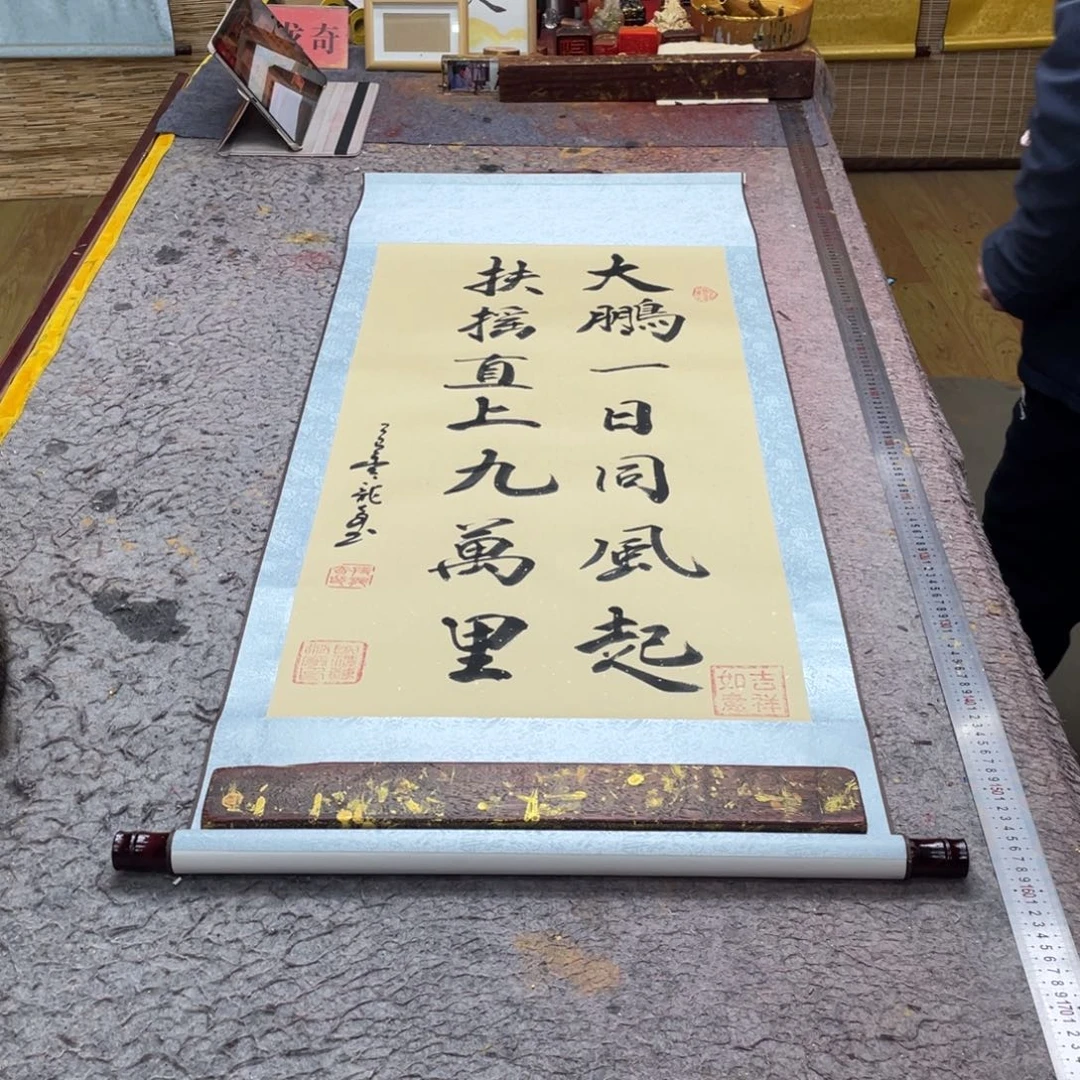 大鵬一日同風起
扶摇直上九萬里
吉祥
如意
奇